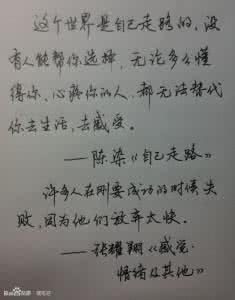 这个世界是自己走路的，没
有人能帮你选择，无论多么懂
得你、心疼你的人，都无法替代
你去生活，去感受。
——陈染《自己走路》
许多人在刚要成功的时候失
败，因为他们放弃太快。
——张耀翔《感觉、
情绪及其他》